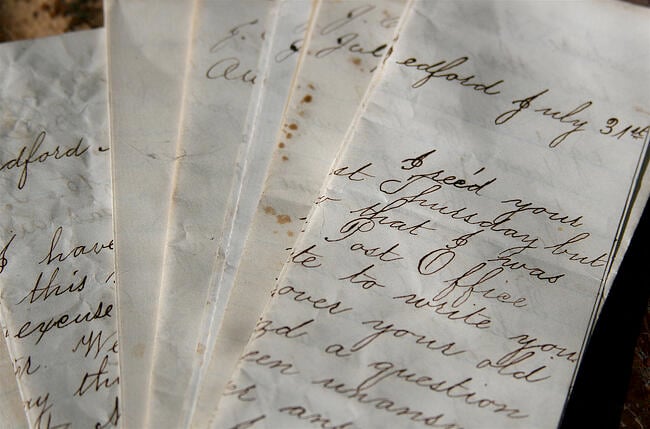 edford July 31st
I rec'd your
st Thursday but
that I was
Post Office
te to write you
over your old
ed a question
een unansw
er an
dford
I have
this
excuse
r. We
ay thi
J. Jul
Au